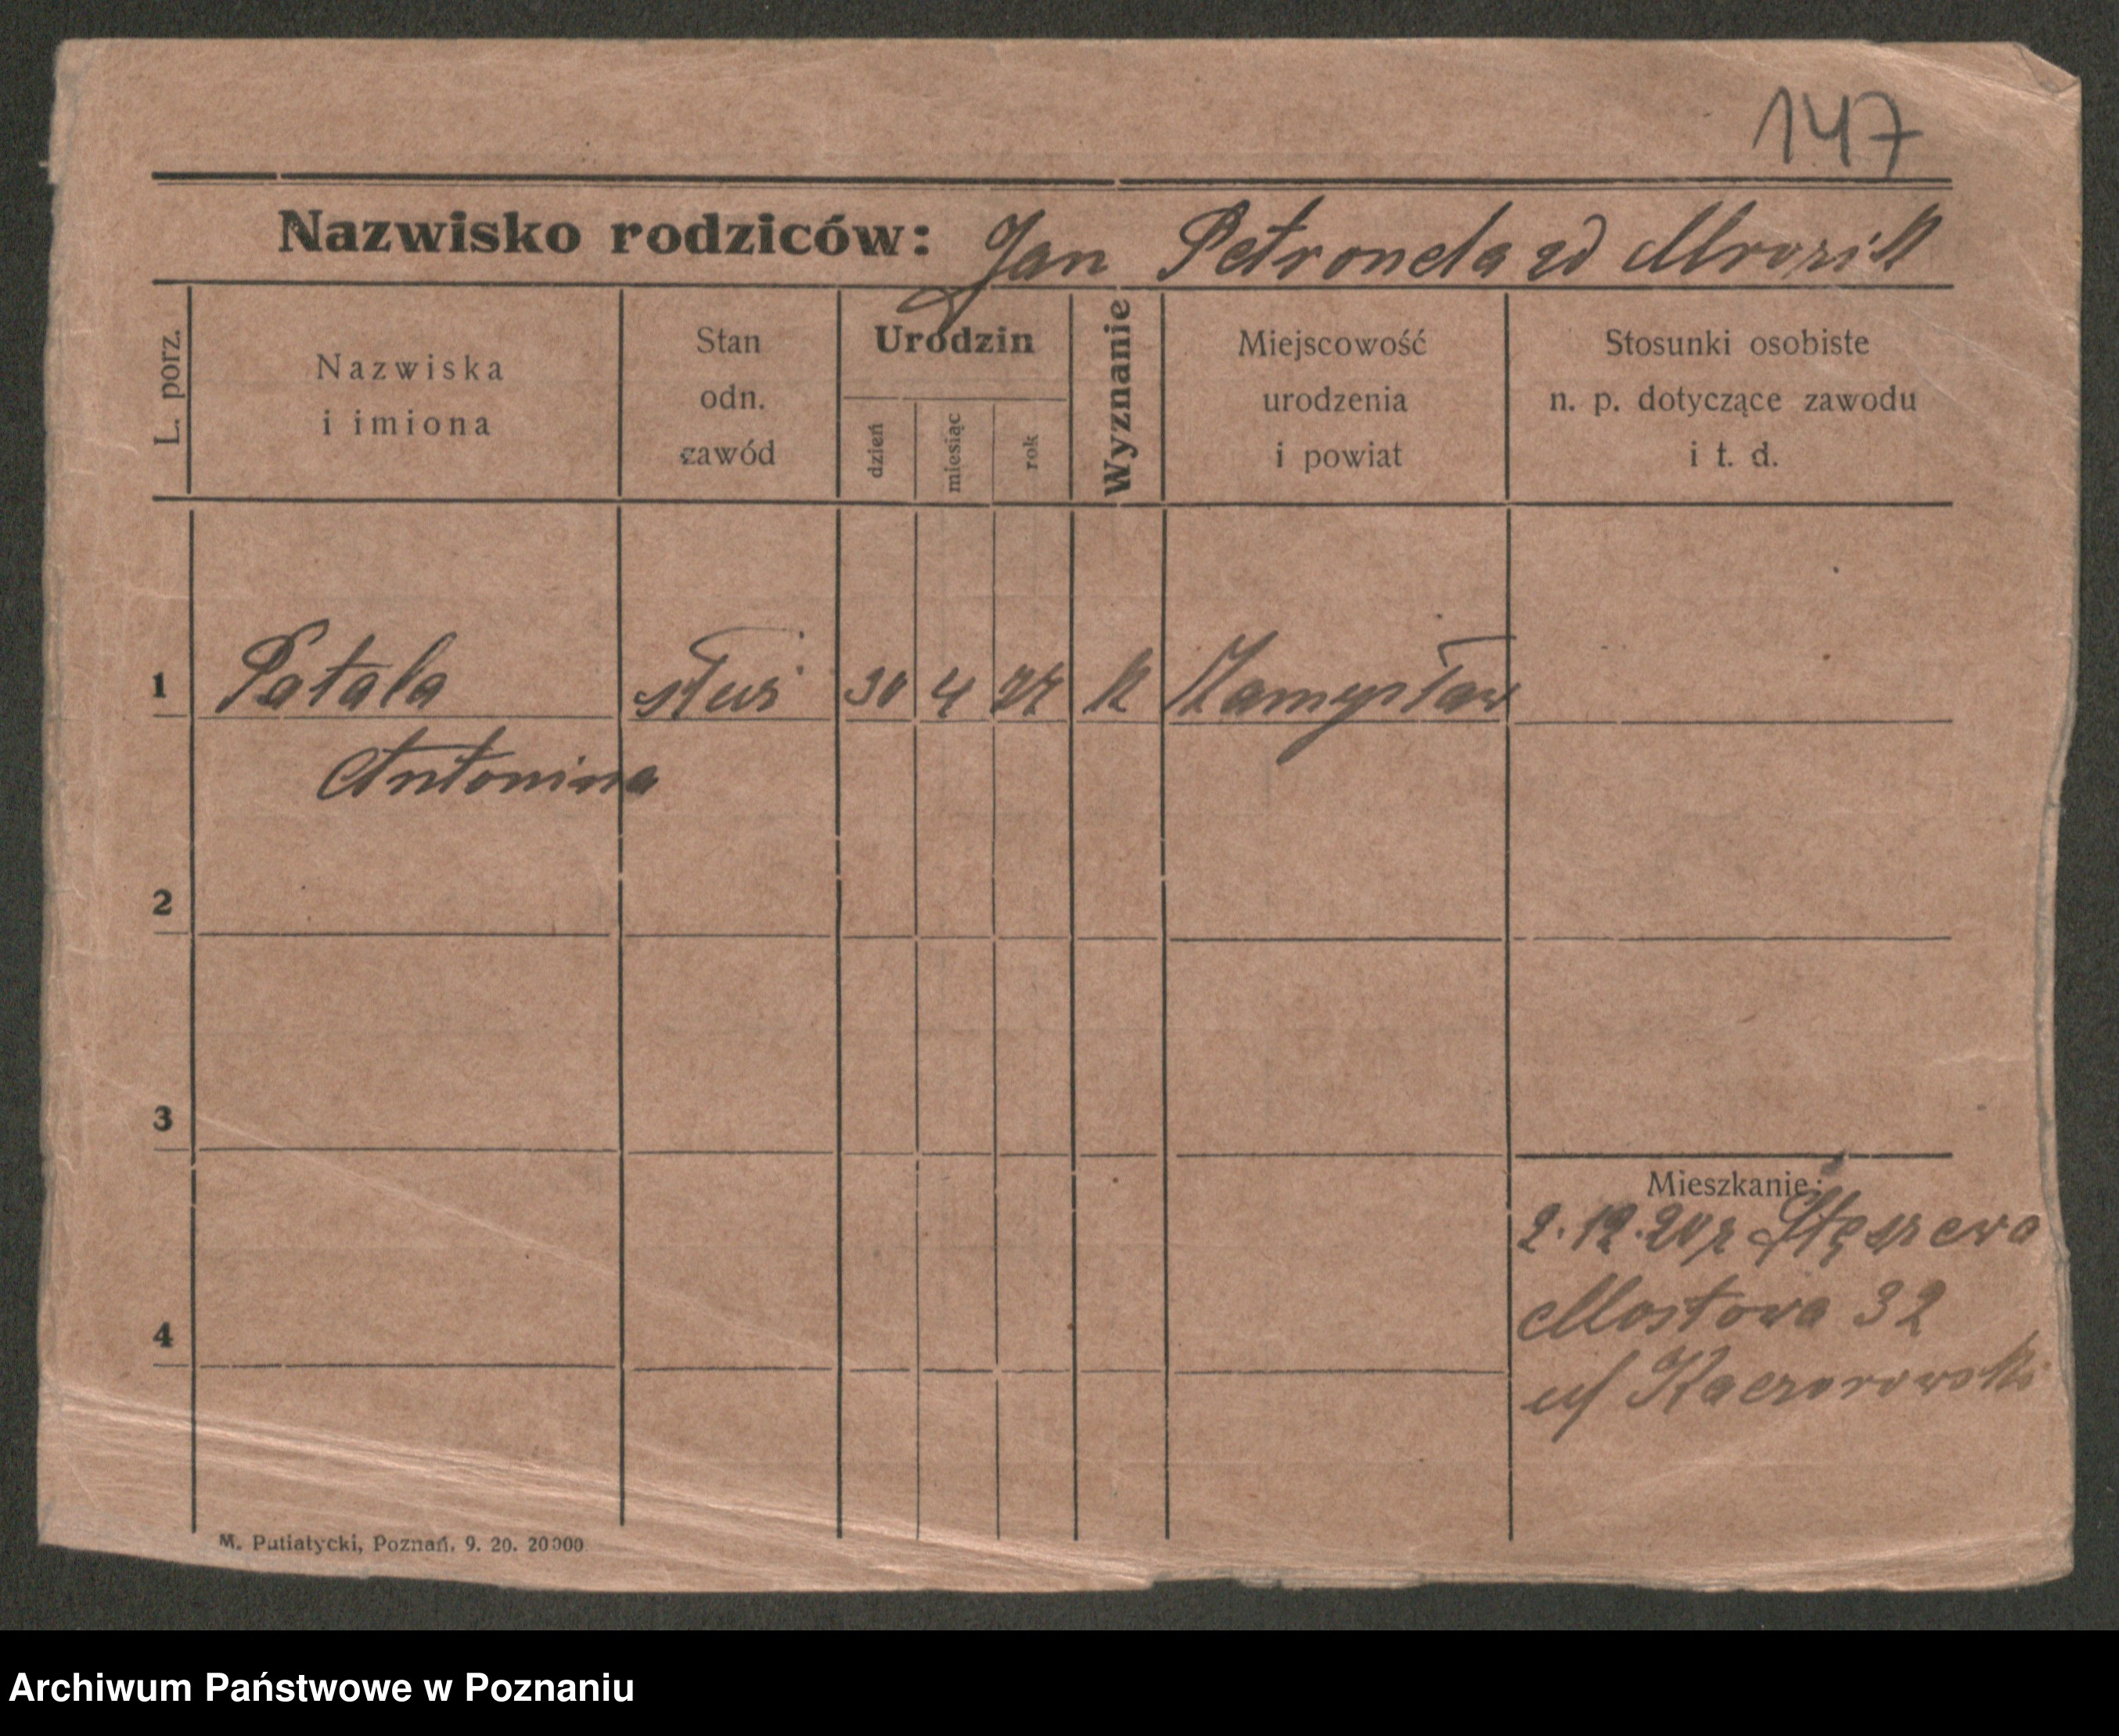 147
Nazwisko rodziców: Jan Petronela zd Mrozik
L. porz.
Nazwiska
i imiona
Stan
odn.
zawód
Urodzin
dzień
miesiąc
rok
Wyznanie
Miejscowość
urodzenia
i powiat
Stosunki osobiste
n. p. dotyczące zawodu
i t. d.
1 Patala służ 30 4 K Namysław
Antonina
2
3
Mieszkanie:
2.12.20 r Stęszewa
4 Mostowa 32
Kaczorowski
M. Putiatycki, Poznań. 9. 20. 20000
Archiwum Państwowe w Poznaniu